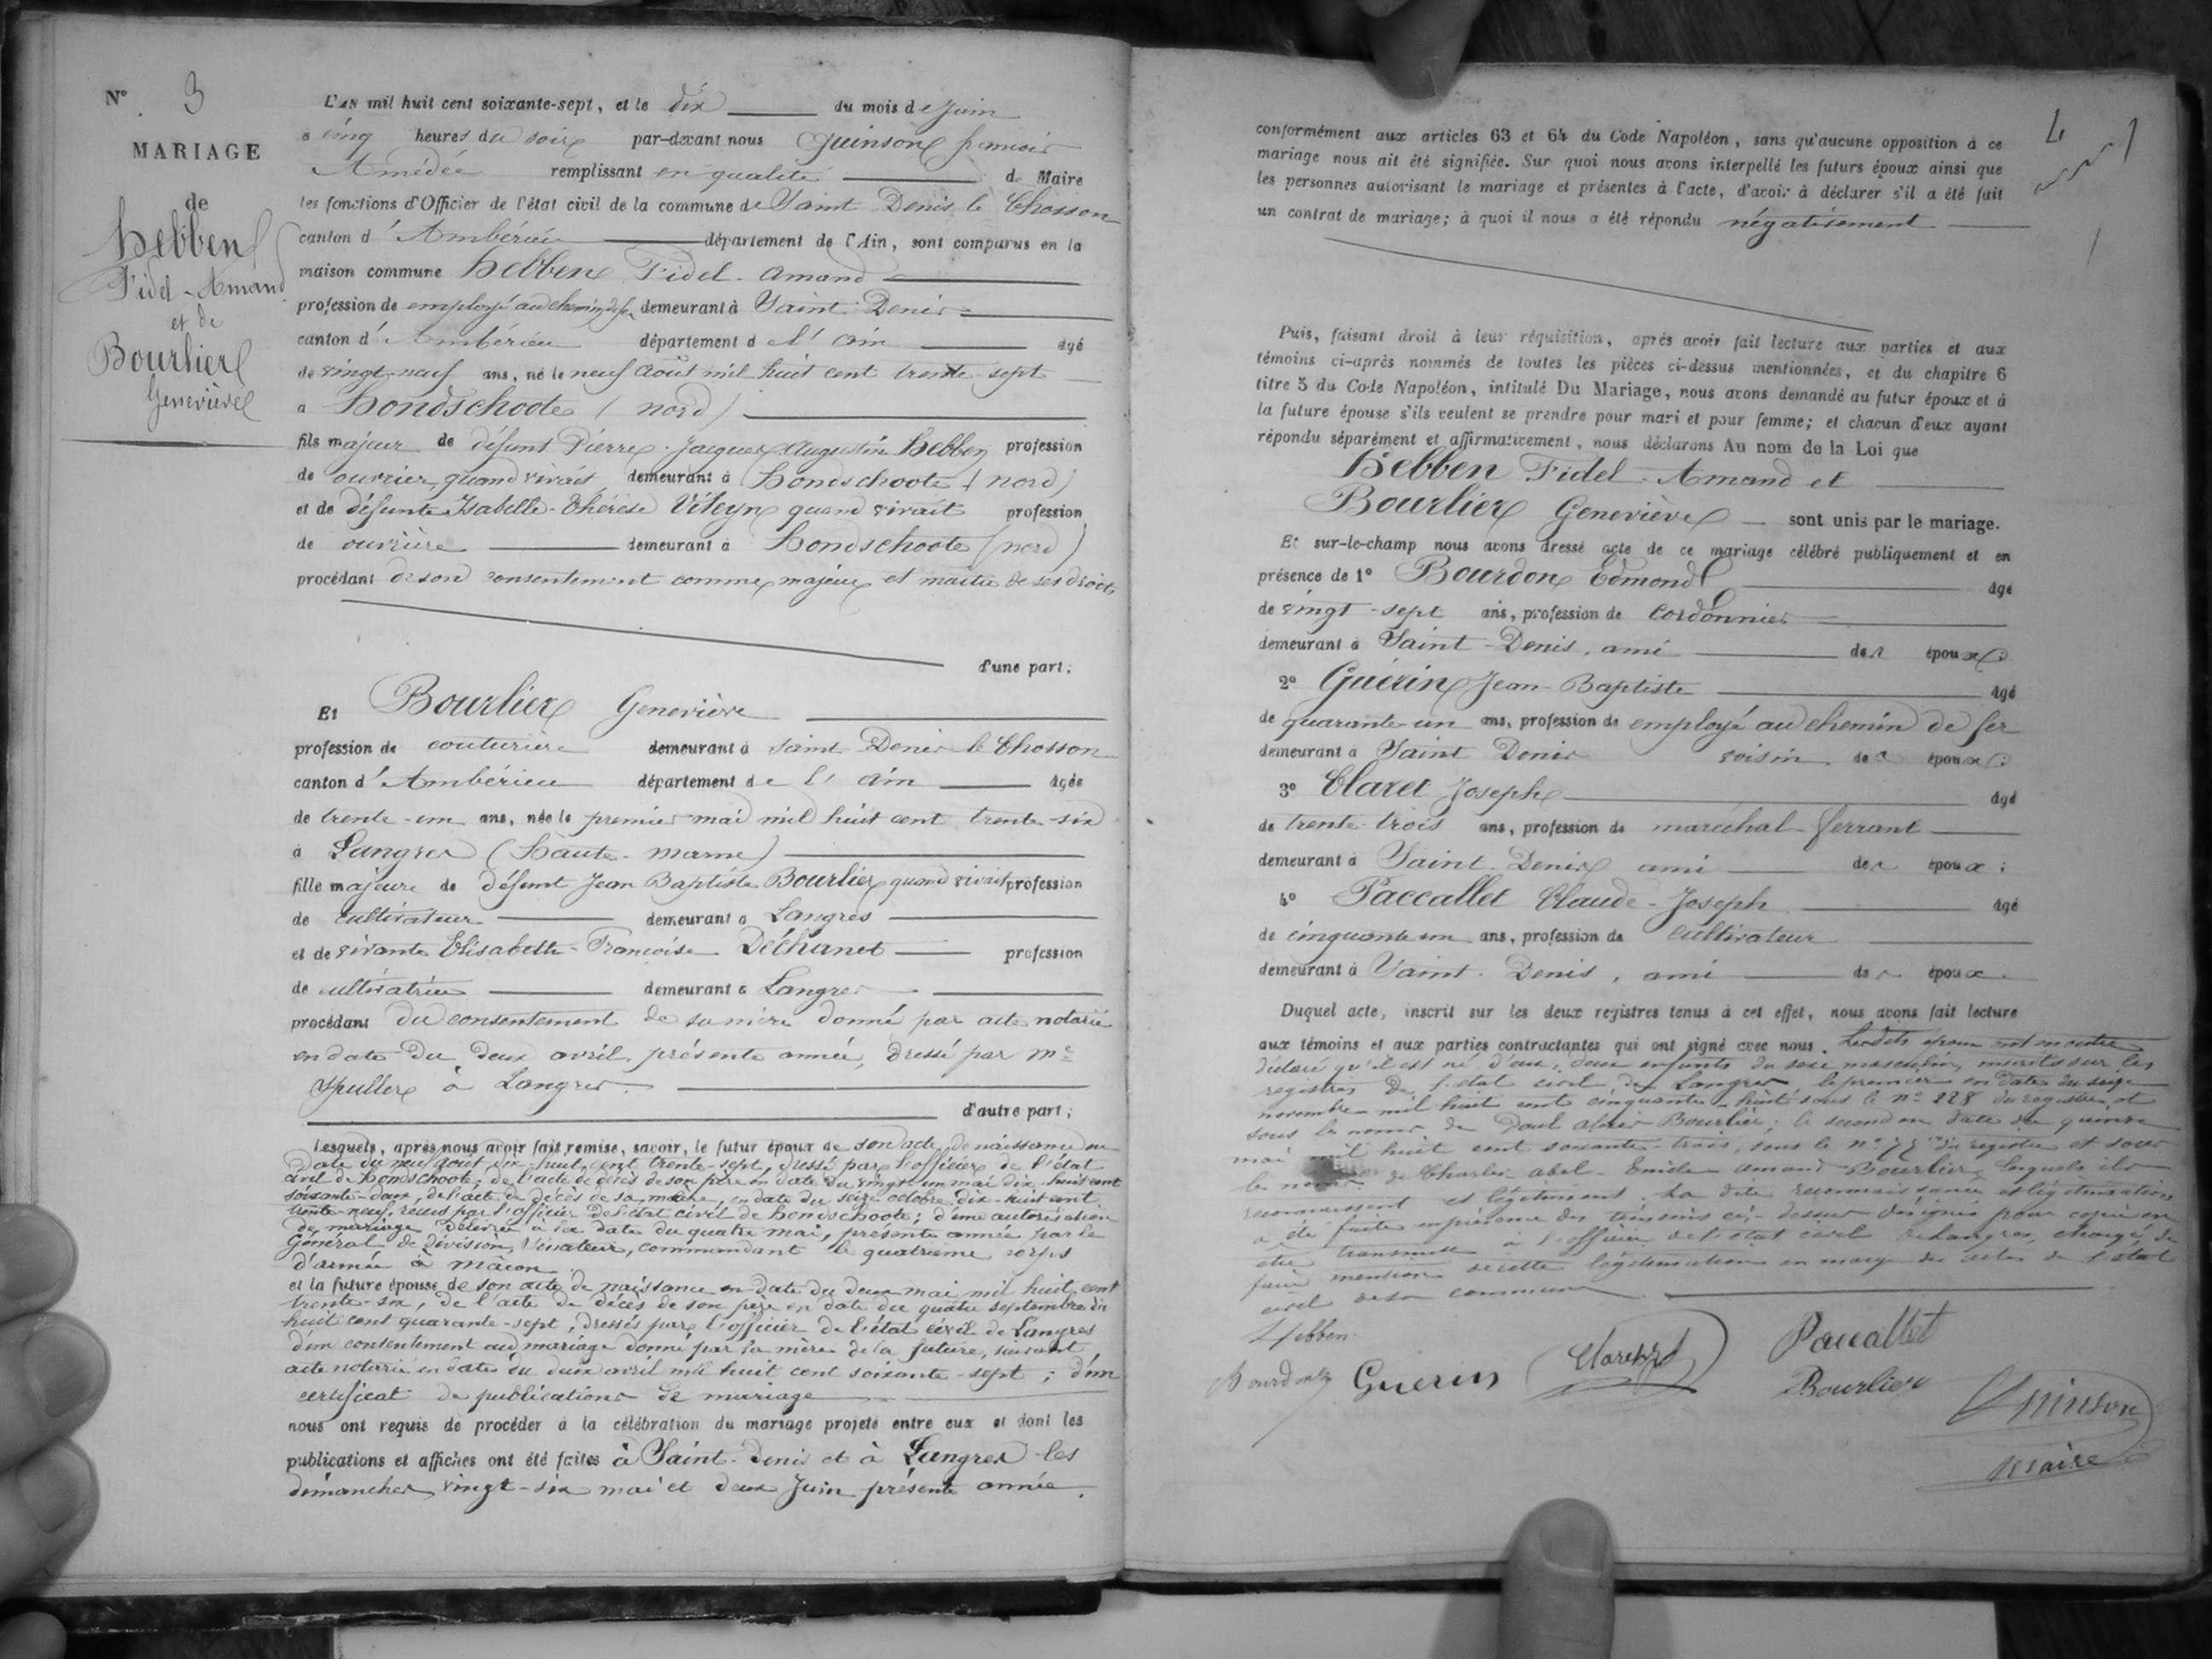 N° 3
MARIAGE
de
Hebben
Fidel-Amand
et de
Bourlier
Geneviève
L'AN mil huit cent soixante-sept, et le dix du mois de Juin
à cinq heures du soir par-devant nous Quinson françois
Amédée remplissant en qualité de Maire
les fonctions d'Officier de l'état civil de la commune de Saint Denis le Chosson
canton d'Ambérieu département de l'Ain, sont comparus en la
maison commune Hebben Fidel-Amand
profession de employé au chemin de fer demeurant à Saint Denis
canton d'Ambérieu département de l'Ain âgé
de vingt-neuf ans, né le neuf août mil huit cent trente-sept
à Hondschoote (nord)
fils majeur de défunt Pierre-Jacques Augustin Hebben profession
de ouvrier quand vivait demeurant à Hondschoote (nord)
et de défunte Isabelle-Thérèse Viteyn quand vivait profession
de ouvrière demeurant à Hondschoote (nord)
procédant de son consentement comme majeur et maître de ses droits
d'une part;
Et Bourlier Geneviève
profession de couturière demeurant à Saint Denis le Chosson
canton d'Ambérieu département de l'Ain âgée
de trente-un ans, née le premier mai mil huit cent trente-six
à Langres (Haute-marne)
fille majeure de défunt Jean Baptiste Bourlier quand vivait profession
de cultivateur demeurant à Langres
et de vivante Elisabeth-Françoise Déchanet profession
de cultivatrice demeurant à Langres
procédant du consentement de sa mère donné par acte notarié
en date du deux avril, présente année, dressé par Me
Spuller à Langres
d'autre part;
Lesquels, après nous avoir fait remise, savoir, le futur époux de son acte de naissance en
date du neuf août dix-huit cent trente-sept, dressé par l'officier de l'état
civil de Hondschoote; de l'acte de décès de son père en date du vingt un mai dix-huit cent
soixante-deux, de l'acte de décès de sa mère, en date du seize octobre dix-huit cent
trente-neuf, reçus par l'officier de l'état civil de Hondschoote; d'une autorisation
de mariage délivrée à la date du quatre mai, présente année par le
Général de division, Sénateur, commandant le quatrième corps
d'armée à Mâcon
et la future épouse de son acte de naissance en date du deux mai mil huit cent
trente-six, de l'acte de décès de son père en date du quatre septembre dix
huit cent quarante-sept, dressés par l'officier de l'état civil de Langres
d'un consentement au mariage donné par la mère de la future, suivant
acte notarié en date du deux avril mil huit cent soixante-sept; d'un
certificat de publications de mariage
nous ont requis de procéder à la célébration du mariage projeté entre eux et dont les
publications et affiches ont été faites à Saint-Denis et à Langres les
dimanches vingt-six mai et deux Juin présente année.
4
conformément aux articles 63 et 64 du Code Napoléon, sans qu'aucune opposition à ce
mariage nous ait été signifiée. Sur quoi nous avons interpellé les futurs époux ainsi que
les personnes autorisant le mariage et présentes à l'acte, d'avoir à déclarer s'il a été fait
un contrat de mariage; à quoi il nous a été répondu négativement
Puis, faisant droit à leur réquisition, après avoir fait lecture aux parties et aux
témoins ci-après nommés de toutes les pièces ci-dessus mentionnées, et du chapitre 6
titre 5 du Code Napoléon, intitulé Du Mariage, nous avons demandé au futur époux et à
la future épouse s'ils veulent se prendre pour mari et pour femme; et chacun d'eux ayant
répondu séparément et affirmativement, nous déclarons Au nom de la Loi que
Hebben Fidel-Amand et
Bourlier Geneviève sont unis par le mariage.
Et sur-le-champ nous avons dressé acte de ce mariage célébré publiquement et en
présence de 1° Bourdon Edmond âgé
de vingt-sept ans, profession de Cordonnier
demeurant à Saint-Denis, ami des époux
2° Guérin Jean-Baptiste âgé
de quarante-un ans, profession de employé au chemin de fer
demeurant à Saint Denis voisin des époux
3° Claret Joseph âgé
de trente-trois ans, profession de maréchal-ferrant
demeurant à Saint-Denis ami des époux;
4° Paccallet Claude-Joseph âgé
de cinquante un ans, profession de cultivateur
demeurant à Saint-Denis, ami des époux
Duquel acte, inscrit sur les deux registres tenus à cet effet, nous avons fait lecture
aux témoins et aux parties contractantes qui ont signé avec nous. Lesdits époux ont en outre
déclaré qu'il est né d'eux, deux enfants du sexe masculin, inscrits sur les
registres de l'état civil de Langres, le premier en date du seize
novembre mil huit cent cinquante-huit sous le n° 228 du registre et
sous les noms de Paul Bourlier; le second en date du quinze
mai mil huit cent soixante-trois, sous le n° du registre et sous
les noms de Charles-abel-Emile amand Bourlier, lesquels ils
reconnaissent et légitiment. La dite reconnaissance et légitimation
a été faite en présence des témoins ci-dessus désignés pour copie en
être transmise à l'officier de l'état civil de Langres, chargé de
faire mention de cette légitimation en marge des actes de l'état
civil de sa commune
Hebben
Bourdon Guerin Claret Paccallet
Bourlier
Quinson
Maire